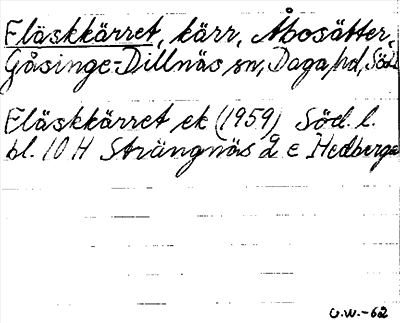 Fläskkärret, kärr, Åbosätter,
Gåsinge-Dillnäs sn, Daga hd, Södl
Fläskkärret ek (1959) Söd. l.
bl. 10 H Strängnäs 2 e Hedberga
U.W.-62